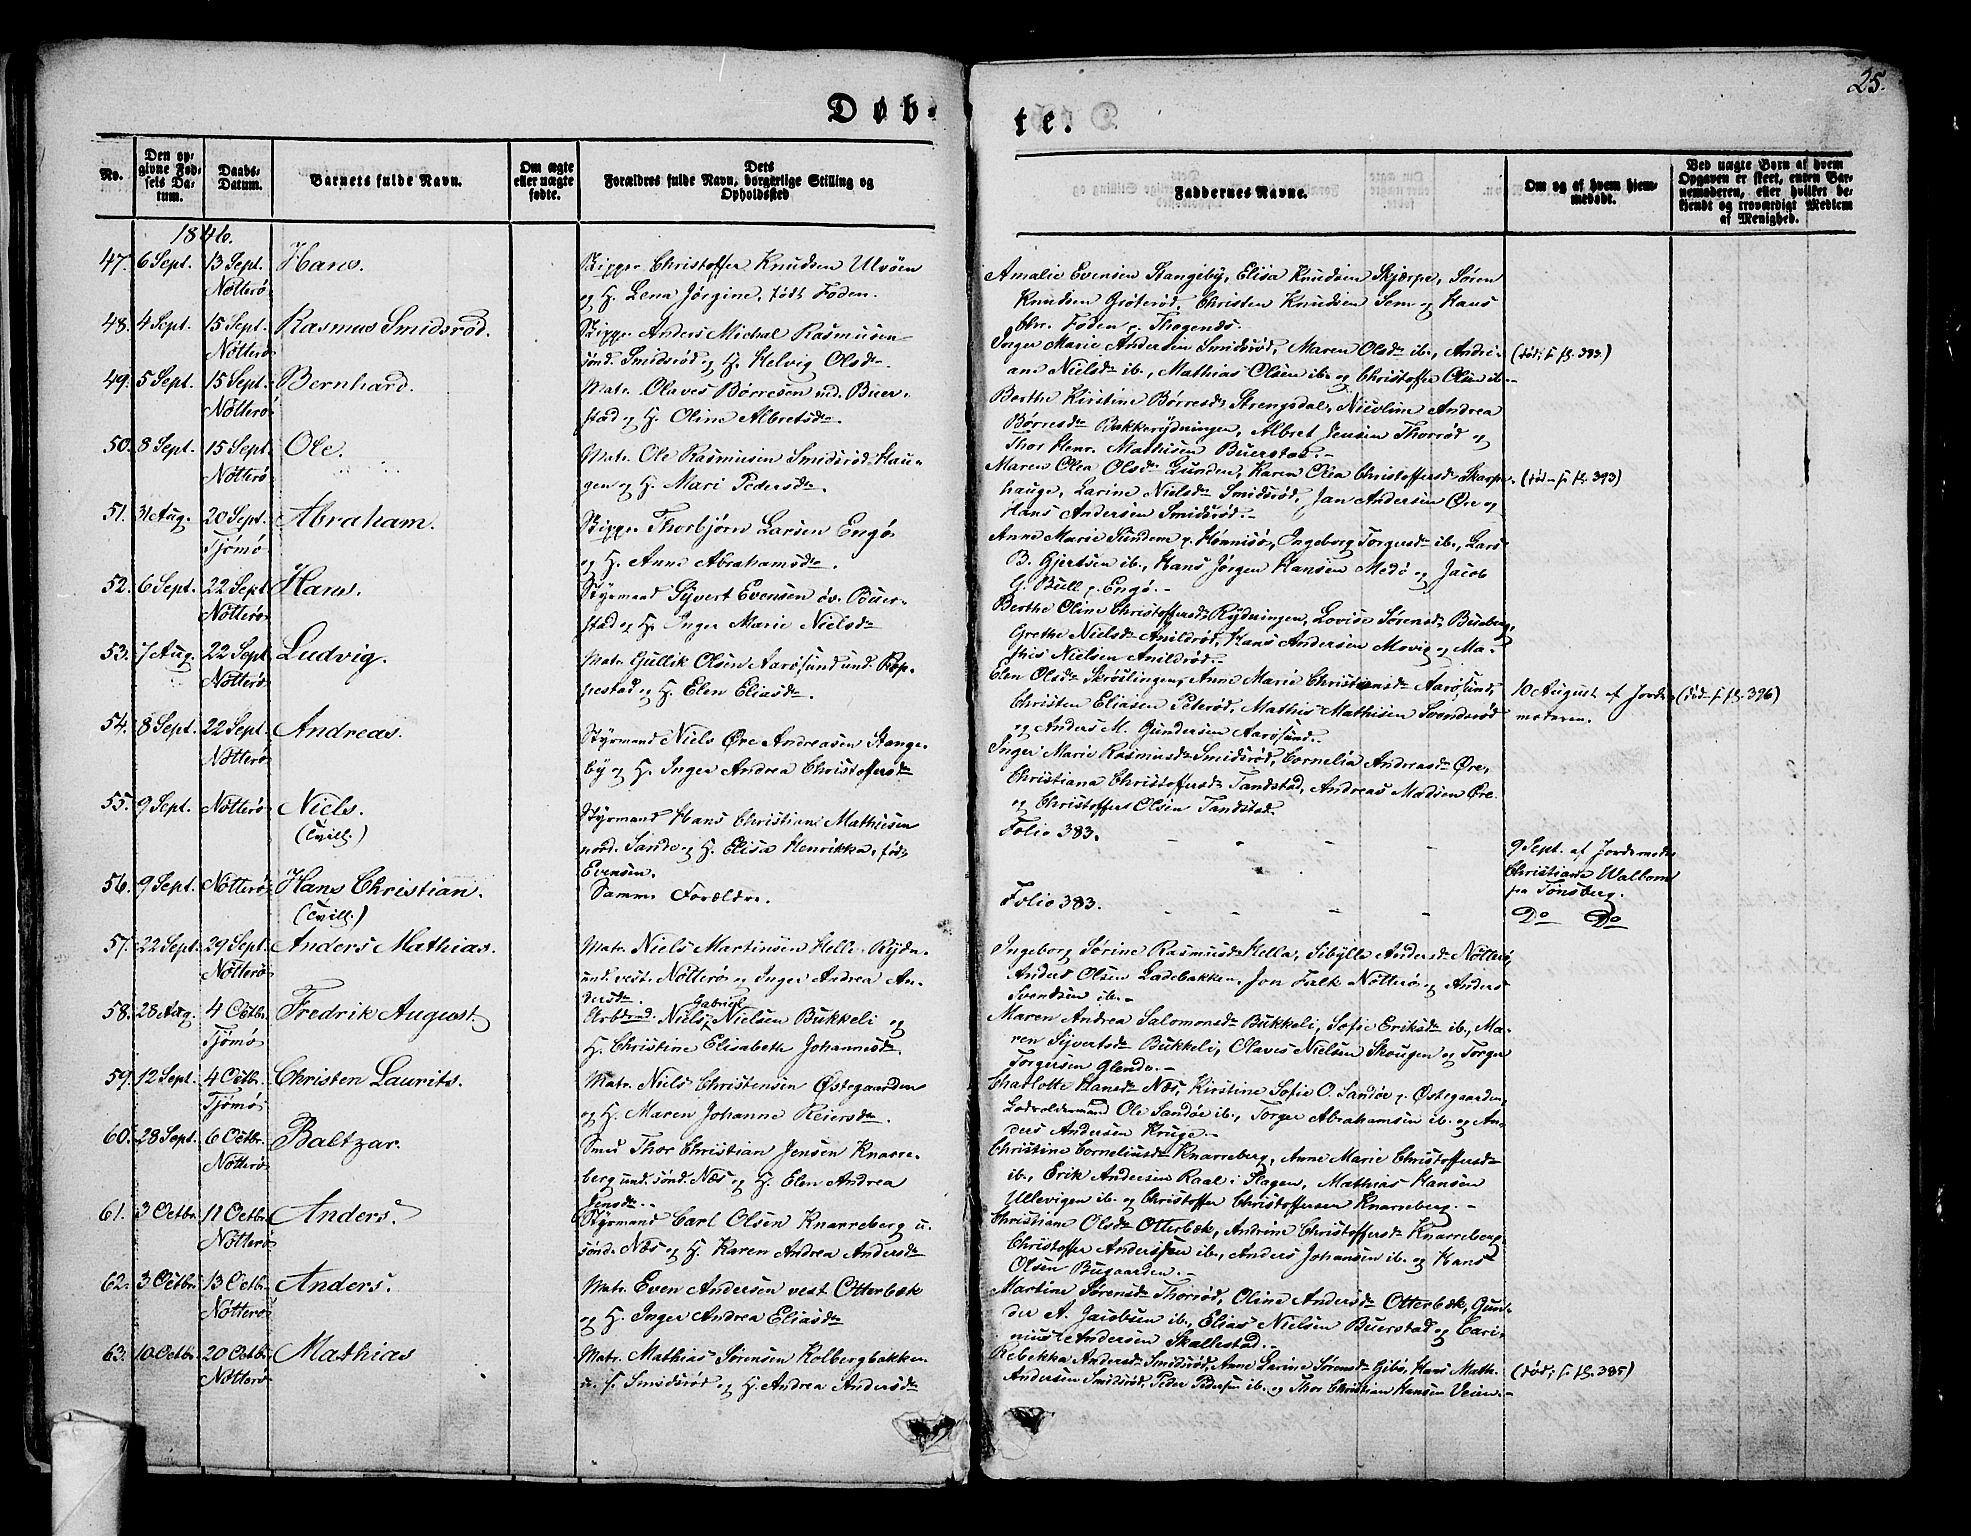 25.
Døb-
te.
No.
Den op-
givne Fød-
sels Da-
tum.
Daabs-
Datum.
Barnets fulde Navn.
Om ægte
eller uægte
fødte.
Dets
Forældres fulde Navn, borgerlige Stilling og
Opholdssted
Faddernes Navne.
Om og af hvem hjem-
medøbt.
Ved uægte Børn af hvem
Opgaven er skeet, enten Bar-
nemoderen, eller hvilket be-
kjendt og troværdigt Medlem
af Menighed.
1846.
47. 6 Sept. 13 Sept. Hans.
Nötterö
Skipper Christoffer Knudsen Ulvöen
og H. Lena Jörgine, födt Foden.
Amalie Evensen Stangeby, Elisa Knudsen Skjærpe, Sören
Knudsen Gröterød, Christen Knudsen Sem og Hans
Chr. Foden p. Thogenæs.
48. 4 Sept. 15 Sept. Rasmus Smidsröd.
Nötterö
Skipper Anders Michal Rasmusen
sönd. Smidsröd og H. Helvig Olsdr.
Inger Marie Andersen Smidsröd, Maren Olsdr ib., Andri-
ane Nielsdr ib., Mathias Olsen ib. og Christoffer Olsen ib.
(död; s. fl. 383.)
49. 5 Sept. 15 Sept. Bernhard.
Nötterö
Matr. Olaves Börresen nd. Buer-
stad og H. Oline Albretsdr.
Berthe Kirstine Börresdr Strengsdal, Nicoline Andrea
Börresdr Bakkerydningen, Albret Jensen Thorröd og
Thor Henr. Mathisen Buerstad.
50. 8 Sept. 15 Sept. Ole.
Nötterö
Matr. Ole Rasmusen Smidsröd-Hau-
gen og H. Mari Pedersdr.
Maren Olea Olsdr Lunden, Karen Olea Christoffersdr Skarp-
hauge, Larine Nielsdr Smidsröd, Jan Andersen Öre og
Hans Andersen Smidsröd.
(död s. fl. 393)
51. 31 Aug. 20 Sept. Abraham.
Tjömö
Skipper Thorbjörn Larsen Engö
og H. Anne Abrahamsdr.
Anne Marie Sundem p. Hönnisö, Ingeborg Torgersdr ib., Lars
B. Gjertsen ib., Hans Jörgen Hansen Medö og Jacob
G. Bull p. Engö.
52. 6 Sept. 22 Sept. Hans.
Nötterö
Styrmand Syvert Evensen öv. Buer-
stad og H. Inger Marie Nielsdr
Berthe Oline Christoffersdr Rydningen, Lovise Sörensdr Bueberg,
Grethe Nielsdr Anildröd, Hans Andersen Movig og Ma-
this Nielsen Anildröd.
53. 7 Aug. 22 Sept Ludvig.
Nötterö
Matr. Gullik Olsen Aarösund und. Rop-
pestad og H. Elen Eliasdr.
Elen Olsdr Skröslingen, Anne Marie Christiansdr Aarösund,
Christen Eliasen Peteröd, Mathis Mathisen Svendsröd
og Anders M. Gundersen Aarösund.
10 August af Jorde-
moderen.
(död s. fl. 396)
54. 8 Sept. 22 Sept. Andreas.
Nötterö
Styrmand Niels Öre Andreasen Stange-
by og H. Inger Andrea Christoffersdr
Inger Marie Rasmusdr Smidsröd, Cornelia Andreasdr Öre,
Christiana Christoffersdr Tandstad, Andreas Madsen Öre
og Christoffer Olsen Tandstad.
55. 9 Sept. Nötterö Niels.
(Tvill.)
Styrmand Hans Christian Mathisen
nord. Sande og H. Elisa Henrikka, födt
Evensen.
Folio 383.
9 Sept. af Jordemoder
Christiane Walbom
fra Tönsberg.
56. 9 Sept. Nötterö Hans Christian.
(Tvill.)
Samme Forældre.
Folio 383.
Do Do
57. 22 Sept. 29 Sept. Anders Mathias.
Nötterö
Matr. Niels Martinsen Hella-Rydn.
und. vest. Nötterö og Inger Andrea An-
dersdr.
Ingeborg Sörine Rasmusdr Hella, Sibylle Andersdr Nötterö,
Anders Olsen Ladebakken, Jon Falk Nötterö og Anders
Svendsen ib.
58. 28 Aug. 4 Octbr. Fredrik August.
Tjömö
Arbdsmd. Niels Gabriel Nielsen Bukkeli og
H. Christine Elisabeth Johannesdr.
Maren Andrea Salomonsdr Bukkeli, Sofie Eriksdr ib., Ma-
ren Syvertsdr Bukkeli, Olaves Nielsen Skougen og Torger
Torgersen Glende.
59. 12 Sept. 4 Octbr. Christen Laurits.
Tjömö
Matr. Niels Christensen Östegaarden
og H. Maren Johanne Reiersdr.
Charlotte Hansdr Næs, Kirstine Sofie O. Sandöe p. Östegaarden,
Lodsoldermand Ole Sandöe ib., Torger Abrahamsen ib. og An-
ders Andersen Kruge.
60. 28 Sept. 6 Octbr. Baltzar.
Nötterö
Smed Thor Christian Jensen Knarre-
berg und. sönd. Næs og H. Elen Andrea
Jensdr.
Christine Corneliusdr Knarreberg, Anne Marie Christoffersdr
ib., Erik Andersen Raal i Slagen, Mathias Hansen
Ullevigen ib. og Christoffer Christoffersen Knarreberg.
61. 3 Octbr. 11 Octbr. Anders.
Nötterö
Styrmand Carl Olsen Knarreberg u.
sönd. Næs og H. Karen Andrea Andersdr
Christiane Olsdr Otterbæk, Andrine Christoffersdr Knarreberg
Christoffer Anderssen ib., Anders Johansen ib. og Hans
Olsen Bugaarden.
62. 3 Octbr. 13 Octbr. Anders.
Nötterö
Matr. Even Andersen vest Otterbæk
og H. Inger Andrea Eliasdr
Martine Sörensdr Thorröd, Oline Andersdr Otterbæk, Gun-
der A. Jacobsen ib., Elias Nielsen Buerstad og Cari-
nius Andersen Skallestad.
63. 10 Octbr. 20 Octbr. Mathias
Nötterö
Matr. Mathias Sörensen Kolbergbakken
u. s. Smidsröd og H. Andrea Andersdr
Rebekka Andersdr Smidsröd, Anne Larine Sörensdr Gibö, Hans Math.
Andersen Smidsröd, Peder Pedersen ib. og Thor Christian Hansen Veien.
(död; s. fl. 385)